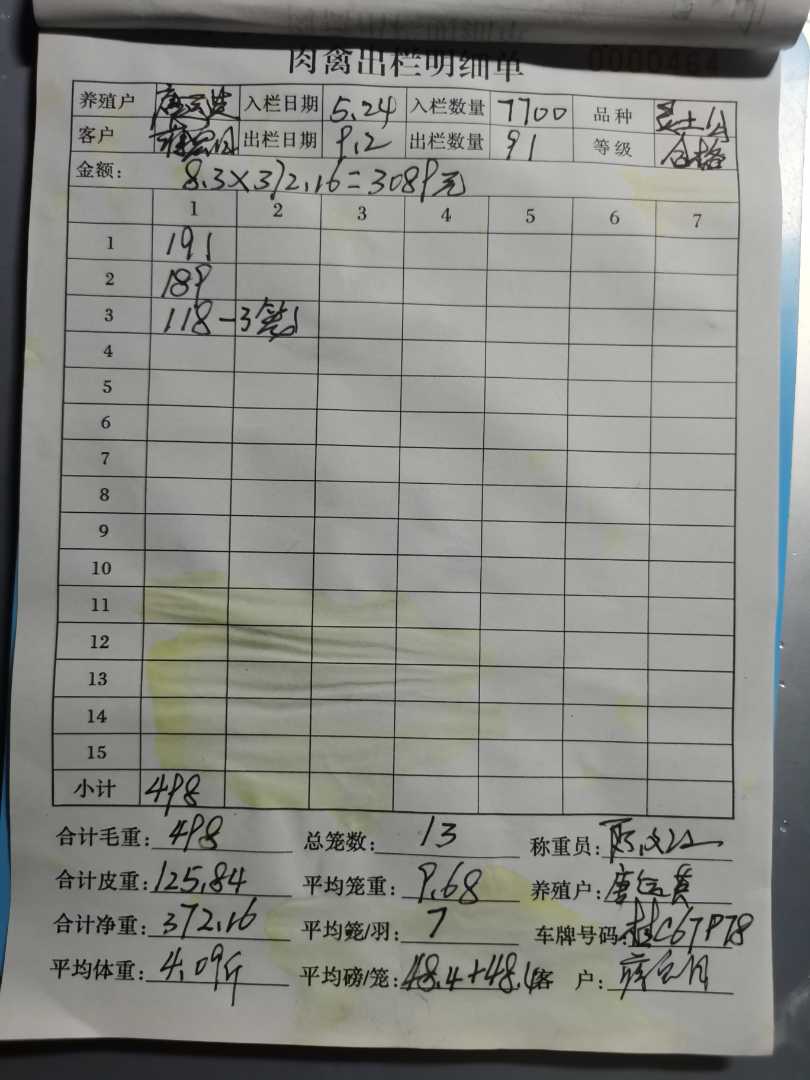 肉禽出栏明细单 0000464
养殖户 入栏日期 5.24 入栏数量 7700 品种
客户 出栏日期 9.2 出栏数量 91 等级 合格
金额: 8.3×372.16=3089元
1 2 3 4 5 6 7
1 191
2 189
3 118-3笼
4
5
6
7
8
9
10
11
12
13
14
15
小计 498
合计毛重: 498 总笼数: 13 称重员:
合计皮重: 125.84 平均笼重: 9.68 养殖户: 唐
合计净重: 372.16 平均笼/羽: 7 车牌号码: 桂C67P78
平均体重: 4.09斤 平均磅/笼: 48.4+48.4 客 户: